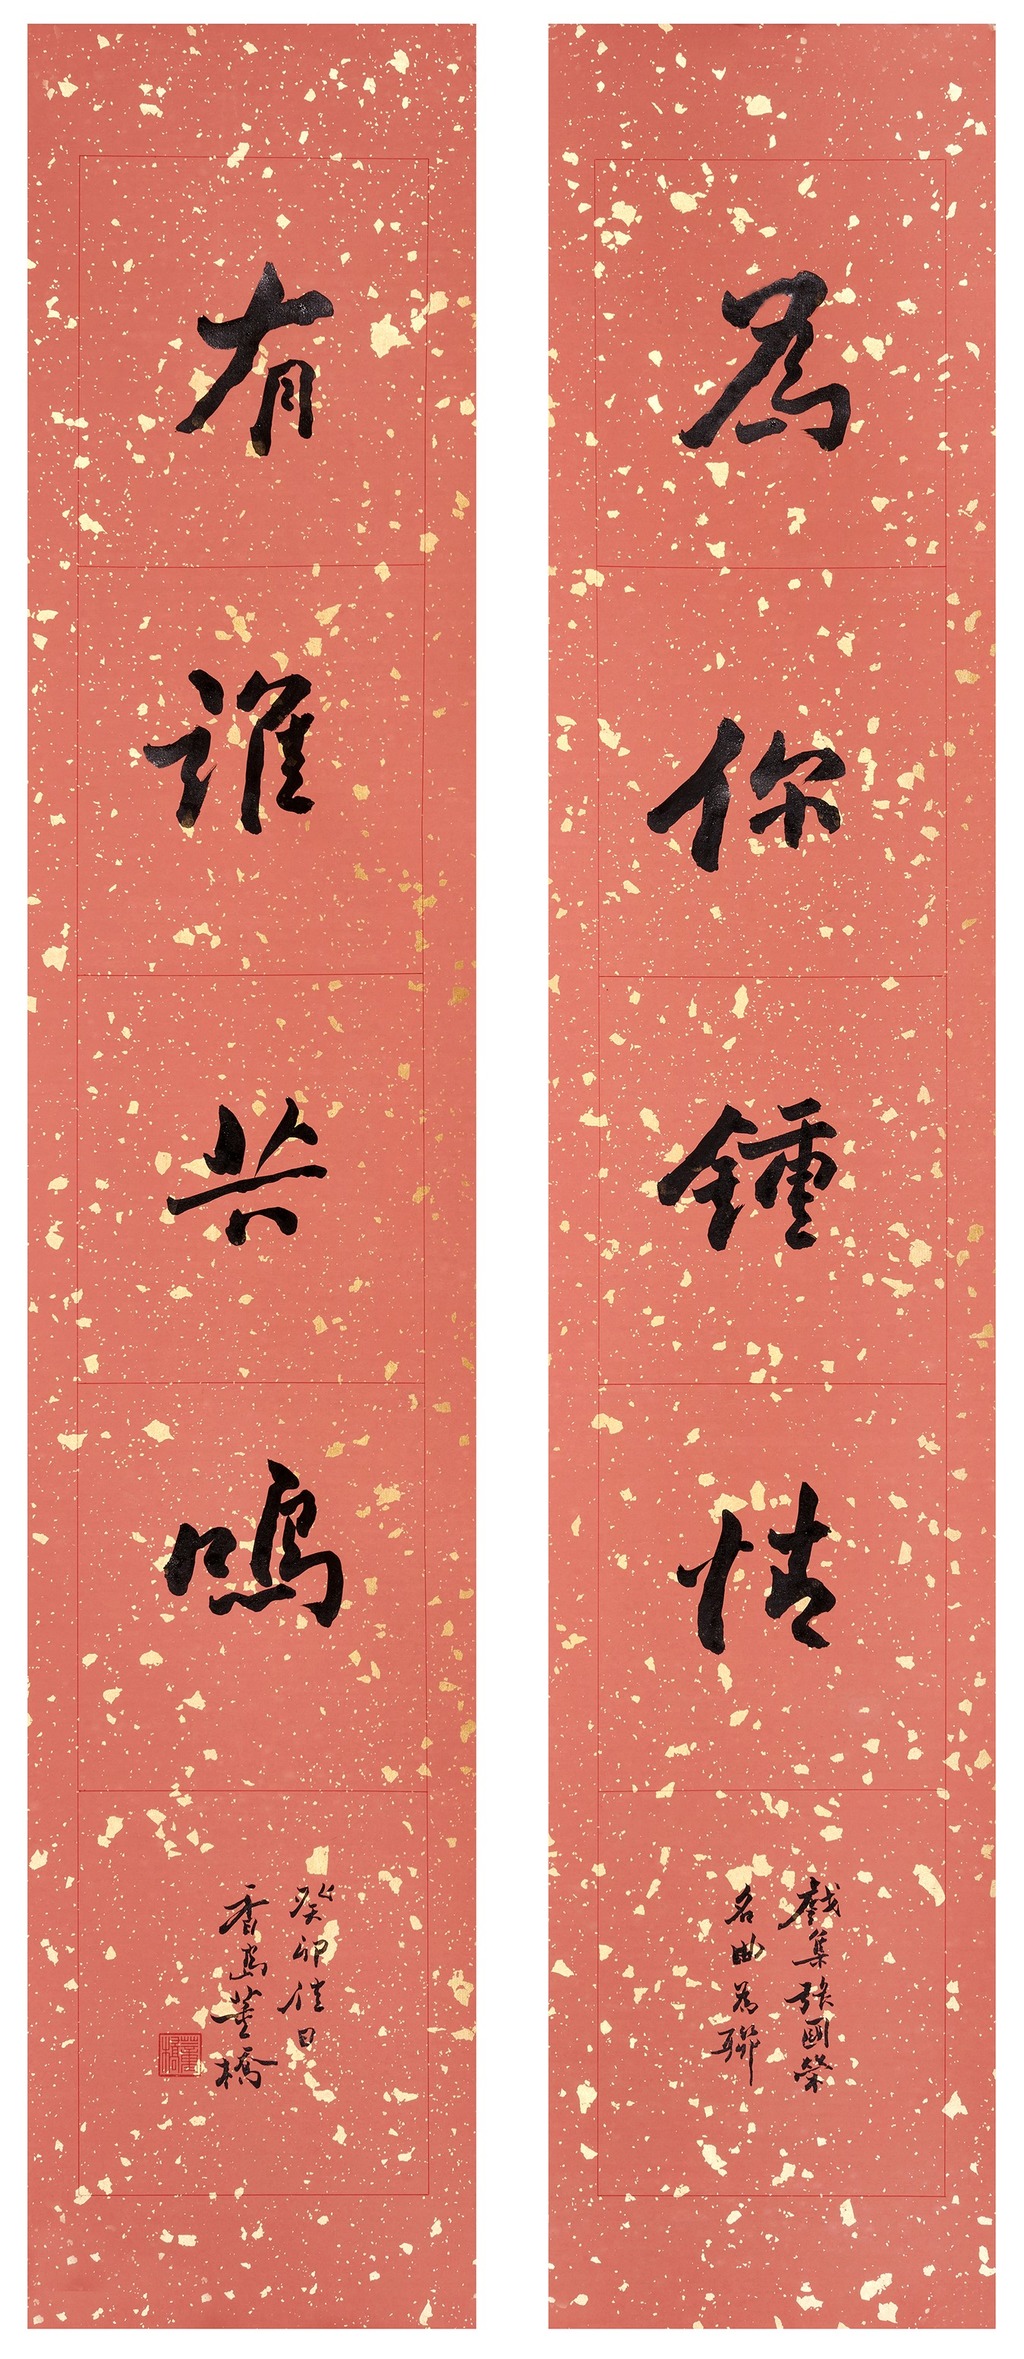 為你鍾情
戲集張國榮
名曲為聯
有誰共鳴
癸卯佳日
香島董橋
董橋